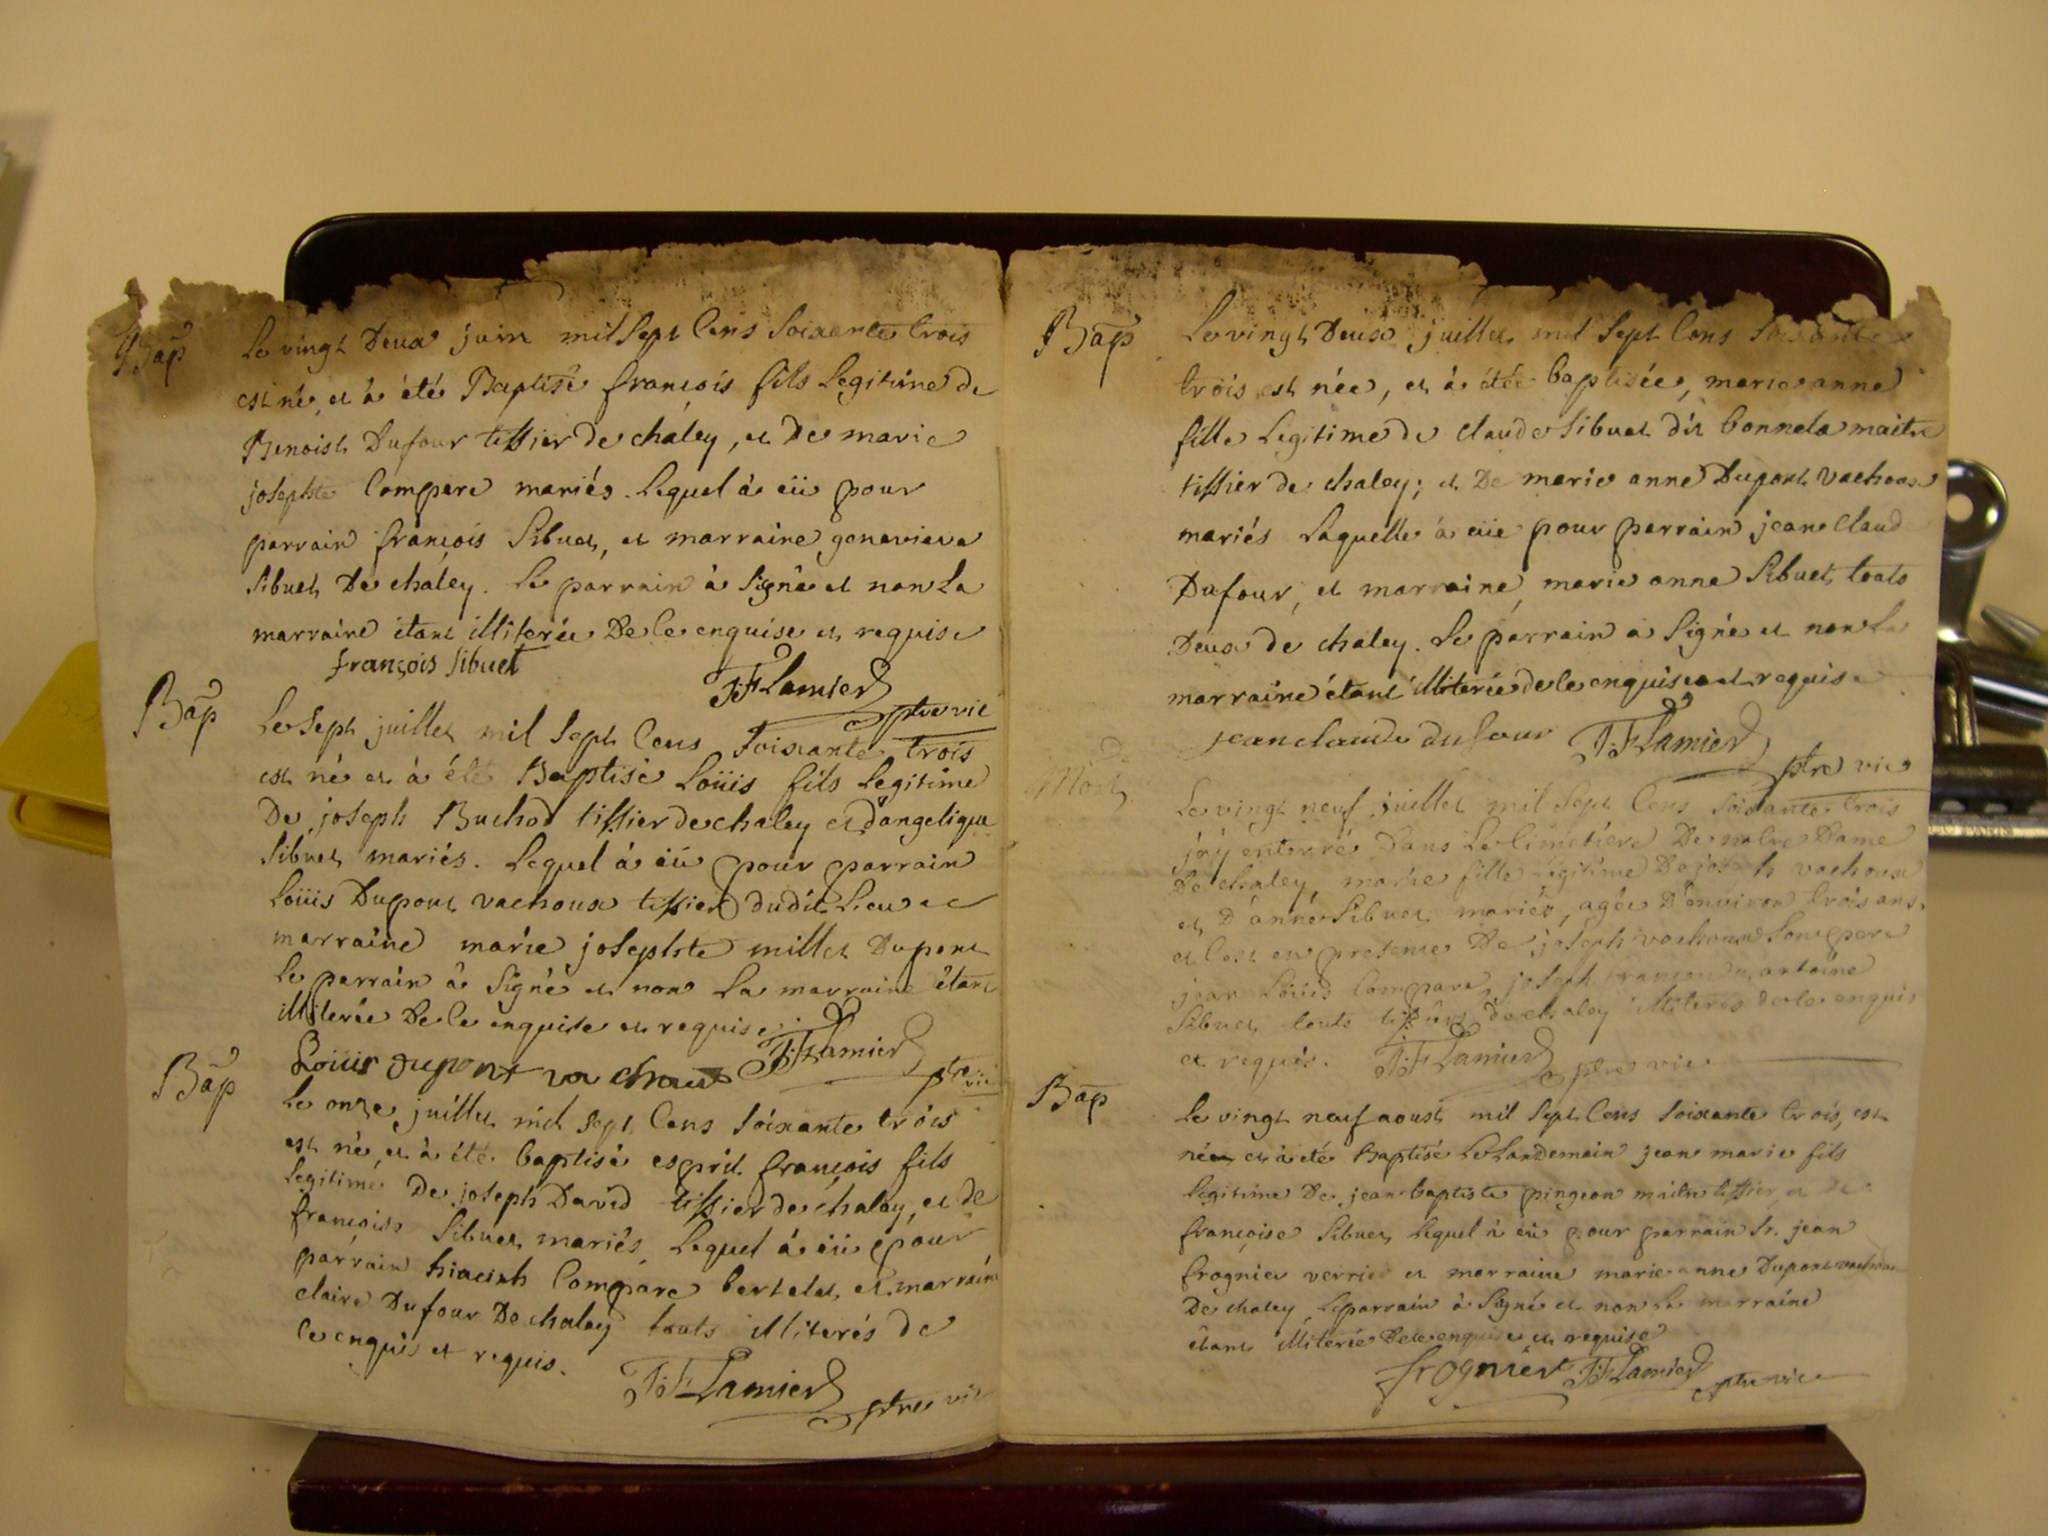 Bap
Le vingt Deux juin mil Sept Cens Soixante trois
est né, et à été Baptisé françois fils Legitime de
Benoist Dufour tissier de chaley, et De marie
josephte Compere mariés. Lequel à eü pour
parrain françois Sibuet, et marraine genevieve
Sibuet De chaley. Le parrain à Signé et non La
marraine étant illiterée De ce enquise et requise
françois sibuet J:F Lamier ptre vic
Bap
Le Sept juillet mil Sept Cens Soixante trois
est né et à été Baptisé Loüis fils Legitime
De joseph Buchod tissier de chaley et d'angelique
Sibuet mariés. Lequel à eü pour parrain
Loüis Dupont vachoux tissier dudit Lieu et
marraine marie josephte millet Dupont
Le parrain à Signé et non La marraine étant
illiterée De ce enquise et requise. J:F Lamier
Loüis dupont va choux ptre vic
Bap
Le onze juillet mil Sept Cens Soixante trois
est né, et à été baptisé esprit françois fils
Legitime De joseph David tissier de chaley, et de
françoise Sibuet mariés Lequel à eü pour
parrain hiacinh Compare bertelet et marraine
claire Dufour De chaley touts illiterés de
ce enquis et requis.
J:F Lamier ptre vic
Bap
Le vingt Deux juillet mil Sept Cens Soixante
trois est née, et à étée baptisée, marie anne
fille Legitime de claude Sibuet dit bonnela maitre
tissier de chaley; et De marie anne Dupont vachoux
mariés Laquelle à eüe pour parrain jean Claude
Dufour, et marraine, marie anne Sibuet, touts
Deux de chaley. Le parrain à Signé et non La
marraine étant illiterée de ce enquise et requise
jean claude dufour J:F Lamier
ptre vic
Mort
Le vingt neuf juillet mil Sept Cens Soixante trois
j'ay enterré dans Le Cimetiere De notre Dame
De chaley, marie fille Legitime De joseph vachoux
et D'anne Sibuet mariés, agée D'environ trois ans.
et C'est en presence De joseph vachoux Son pere
jean Loüis Compare, joseph antoine
Sibuet touts de chaley illiterés de ce enquis
et requis. J:F Lamier ptre vic
Bap
Le vingt neuf aoust mil Sept Cens Soixante trois, est
née et à été Baptisé Le Landemain jean marie fils
Legitime De jean baptiste pingeon maitre tissier, et de
françoise Sibuet, Lequel à eü pour parrain Sr. jean
frognier verrier et marraine marie anne Dupont vachoux
De chaley, Le parrain à Signé et non La marraine
étant illiterée De ce enquise et requise
frognier J:F Lamier ptre vic